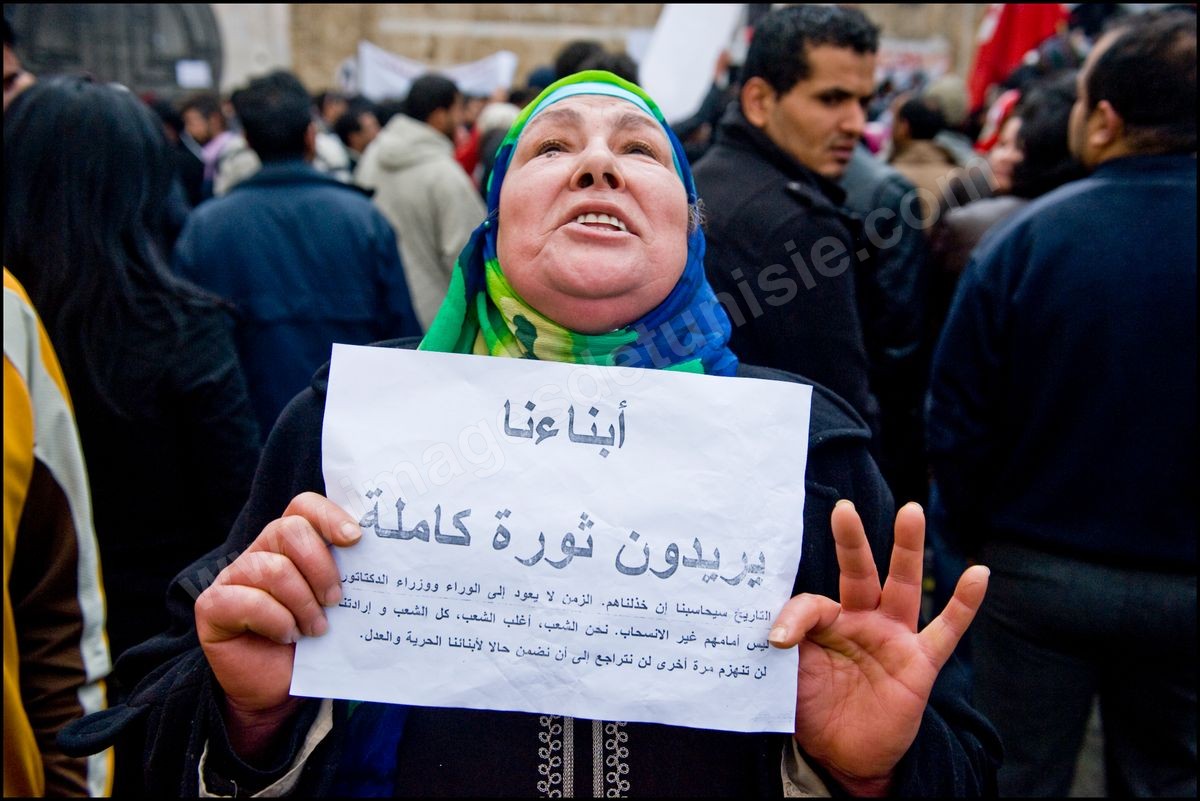 أبناءنا
يريدون ثورة كاملة
التاريخ سيحاسبنا إن خذلناهم. الزمن لا يعود إلى الوراء ووزراء الدكتاتور
ليس أمامهم غير الانسحاب. نحن الشعب، أغلب الشعب، كل الشعب و إرادتنا
لن تنهزم مرة أخرى لن نتراجع إلى أن نضمن حالا لأبنائنا الحرية والعدل.
www.imagesdetunisie.com